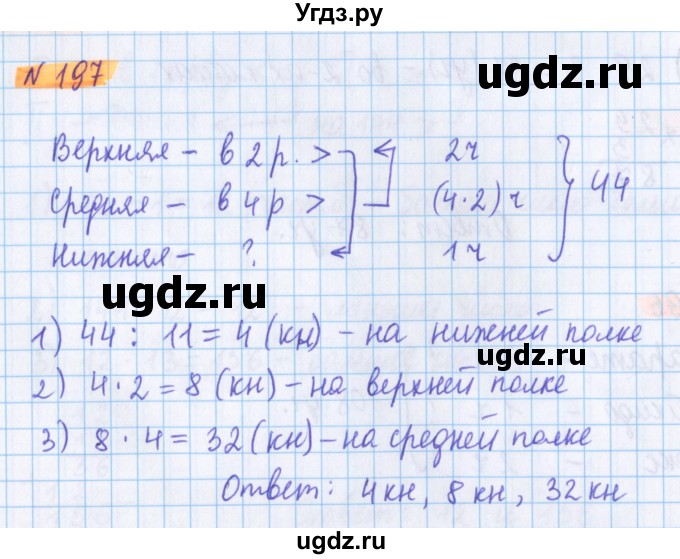 Угдз.ру
N 197
ugdz.ru
Верхняя – в 2 р. > 2ч
Средняя – в 4 р > (4·2) ч } 44
Нижняя – ? 1ч
ugdz.ru
1) 44 : 11 = 4 (кн) – на нижней полке
ugdz.ru
2) 4 · 2 = 8 (кн) – на верхней полке
3) 8 · 4 = 32 (кн) – на средней полке
Ответ: 4 кн, 8 кн, 32 кн
ugdz.ru
ugdz.ru
ugdz.ru